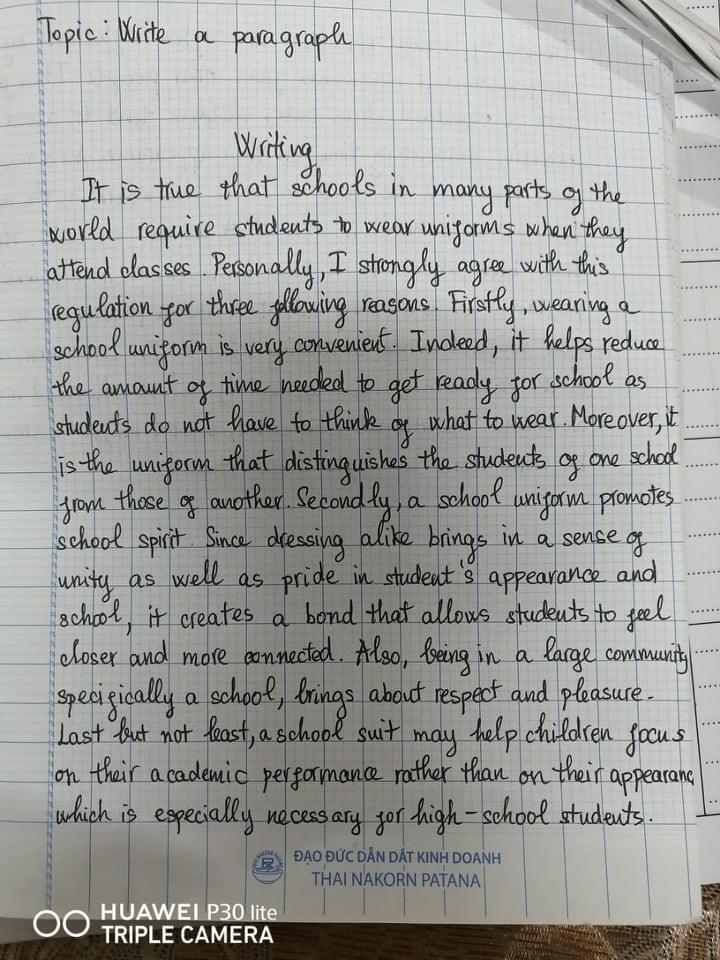 Topic: Write a paragraph
Writing
It is true that schools in many parts of the
world require students to wear uniforms when they
attend classes. Personally, I strongly agree with this
regulation for three following reasons. Firstly, wearing a
school uniform is very convenient. Indeed, it helps reduce
the amount of time needed to get ready for school as
students do not have to think of what to wear. Moreover, it
is the uniform that distinguishes the students of one school
from those of another. Secondly, a school uniform promotes
school spirit. Since dressing alike brings in a sense of
unity as well as pride in student's appearance and
school, it creates a bond that allows students to feel
closer and more connected. Also, being in a large community
specifically a school, brings about respect and pleasure.
Last but not least, a school suit may help children focus
on their academic performance rather than on their appearanc
which is especially necessary for high-school students.
ĐẠO ĐỨC DẪN DẮT KINH DOANH
THAI NAKORN PATANA
HUAWEI P30 lite
TRIPLE CAMERA